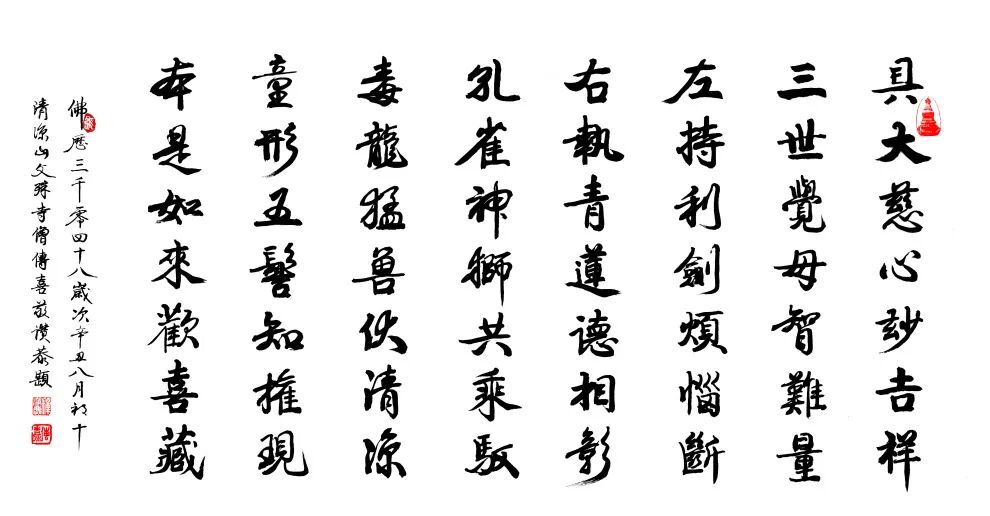 具大慈心妙吉祥
三世覺母智難量
左持利劍煩惱斷
右執青蓮德相彰
孔雀神獅共乘馭
毒龍猛兽伏清凉
童形五髻知權現
本是如來歡喜藏
佛歷三千零四十八歲次辛丑八月初十
清凉山文殊寺僧傳喜敬讚恭題